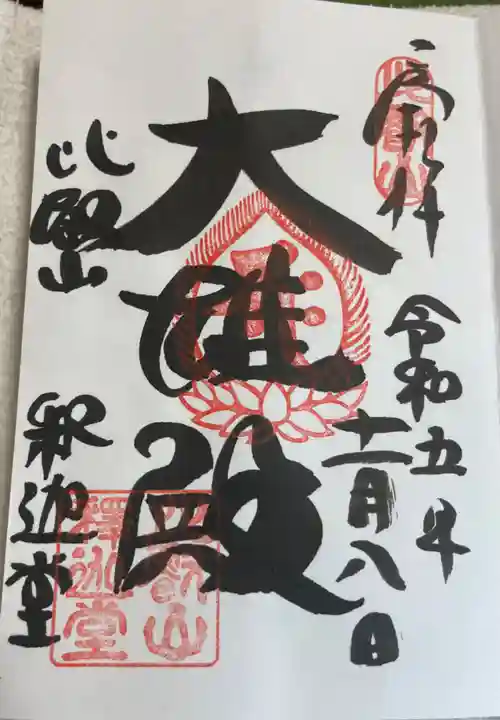 令和五年
十一月八日
大雄殿
比叡山
釈迦堂
比叡山
釋迦堂